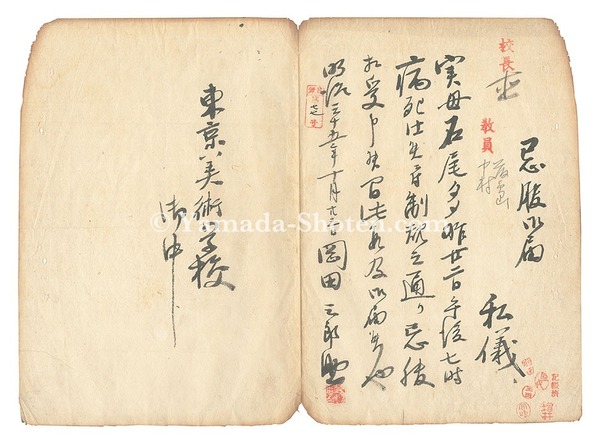 忌服御届
私儀、
実母石尾タダ昨廿二日午後七時
病死仕候ニ付制規之通り忌服
相受申候間此段及御届候也
明治三十五年十月廿三日 岡田三郎助
東京美術学校
御中
校長
教員
中村
© Yamada-Shoten.com